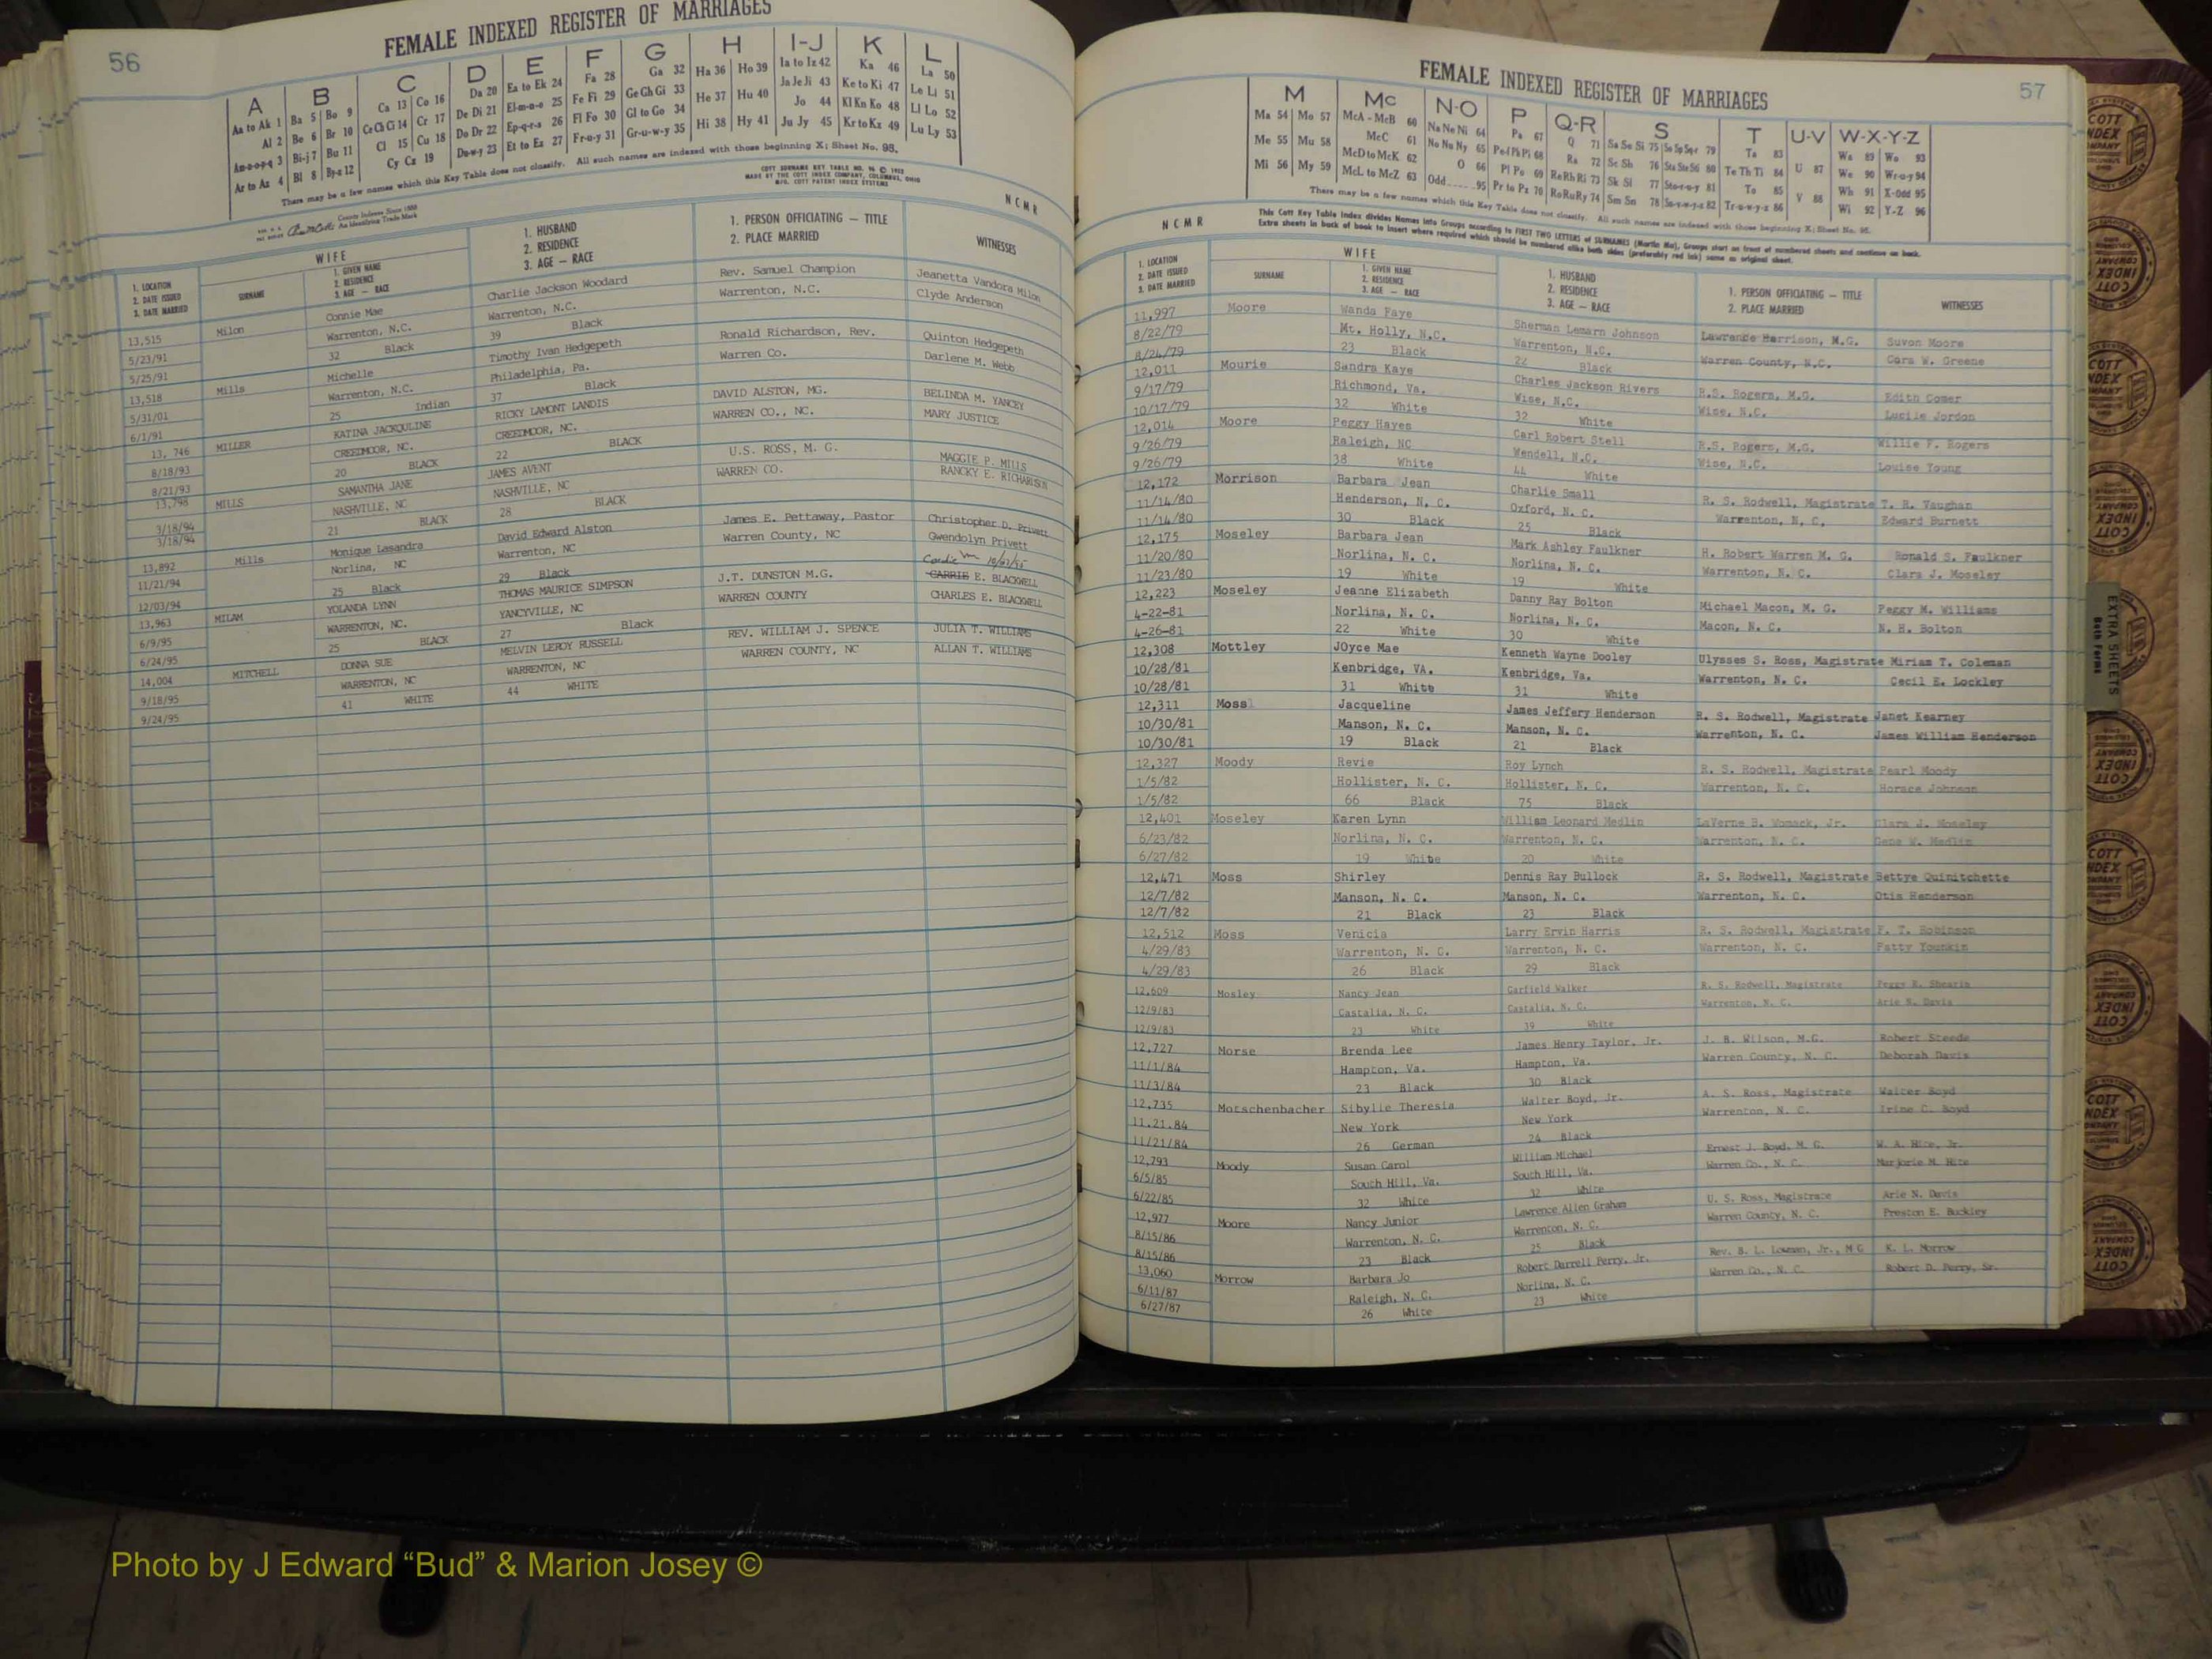 56
FEMALE INDEXED REGISTER OF MARRIAGES
A B C D E F G H I-J K L
Aa to Ak 1 Ba 5 Bo 9 Ca 13 Co 16 Da 20 Ea to Ek 24 Fa 28 Ga 32 Ha 36 Ho 39 Ia to Iz 42 Ka 46 La 50
Al 2 Be 6 Br 10 Ce Ch Ci 14 Cr 17 De Di 21 El-m-n-o 25 Fe Fi 29 Ge Gh Gi 33 He 37 Hu 40 Ja Je Ji 43 Ke to Ki 47 Le Li 51
Am-n-o-p-q 3 Bi-j 7 Bu 11 Cl 15 Cu 18 Do Dr 22 Ep-q-r-s 26 Fl Fo 30 Gl to Go 34 Hi 38 Hy 41 Jo 44 Kl Kn Ko 48 Ll Lo 52
Ar to Az 4 Bl 8 By-z 12 Cy Cz 19 Du-w-y 23 Et to Ez 27 Fr-u-y 31 Gr-u-w-y 35 Ju Jy 45 Kr to Kz 49 Lu Ly 53
There may be a few names which this Key Table does not classify. All such names are indexed with those beginning X; Sheet No. 95.
COTT SURNAME KEY TABLE NO. 96 © 1952
MADE BY THE COTT INDEX COMPANY, COLUMBUS, OHIO
MFG. COTT PATENT INDEX SYSTEMS
County Indexes Since 1888
An Identifying Trade Mark
NCMR
1. LOCATION
2. DATE ISSUED
3. DATE MARRIED
WIFE
SURNAME
1. GIVEN NAME
2. RESIDENCE
3. AGE — RACE
1. HUSBAND
2. RESIDENCE
3. AGE — RACE
1. PERSON OFFICIATING — TITLE
2. PLACE MARRIED
WITNESSES
13,515 Milon Connie Mae Charlie Jackson Woodard Rev. Samuel Champion Jeanetta Vandora Milon
5/23/91 Warrenton, N.C. Warrenton, N.C. Warrenton, N.C. Clyde Anderson
5/25/91 32 Black 39 Black
13,518 Mills Michelle Timothy Ivan Hedgepeth Ronald Richardson, Rev. Quinton Hedgepeth
5/31/01 Warrenton, N.C. Philadelphia, Pa. Warren Co. Darlene M. Webb
6/1/91 25 Indian 37 Black
13, 746 MILLER KATINA JACKQULINE RICKY LAMONT LANDIS DAVID ALSTON, MG. BELINDA M. YANCEY
8/18/93 CREEDMOOR, NC. CREEDMOOR, NC. WARREN CO., NC. MARY JUSTICE
8/21/93 20 BLACK 22 BLACK
13,798 MILLS SAMANTHA JANE JAMES AVENT U.S. ROSS, M. G. MAGGIE P. MILLS
3/18/94 NASHVILLE, NC NASHVILLE, NC WARREN CO. RANCKY E. RICHARDSON
3/18/94 21 BLACK 28 BLACK
13,892 Mills Monique Lasandra David Edward Alston James E. Pettaway, Pastor Christopher D. Privett
11/21/94 Norlina, NC Warrenton, NC Warren County, NC Gwendolyn Privett
12/03/94 25 Black 29 Black
13,963 MILAM YOLANDA LYNN THOMAS MAURICE SIMPSON J.T. DUNSTON M.G. CARRIE E. BLACKWELL
6/9/95 WARRENTON, NC. YANCYVILLE, NC WARREN COUNTY CHARLES E. BLACKWELL
6/24/95 25 BLACK 27 Black
14,004 MITCHELL DONNA SUE MELVIN LEROY RUSSELL REV. WILLIAM J. SPENCE JULIA T. WILLIAMS
9/18/95 WARRENTON, NC WARRENTON, NC WARREN COUNTY, NC ALLAN T. WILLIAMS
9/24/95 41 WHITE 44 WHITE
FEMALE INDEXED REGISTER OF MARRIAGES
57
M Mc N-O P Q-R S T U-V W-X-Y-Z
Ma 54 Mo 57 McA - McB 60 Na Ne Ni 64 Pa 67 Q 71 Sa Se Si 75 So Sp Sq-r 79 Ta 83 U 87 Wa 89 Wo 93
Me 55 Mu 58 McC 61 No Nu Ny 65 Pe-f Ph Pi 68 Ra 72 Sc Sh 76 Sta Ste Sti 80 Te Th Ti 84 V 88 We 90 Wr-u-y 94
Mi 56 My 59 McD to McK 62 O 66 Pl Po 69 Re Rh Ri 73 Sk Sl 77 Sto-r-u-y 81 To 85 Wh 91 X-Odd 95
McL to McZ 63 Odd 95 Pr to Pz 70 Ro Ru Ry 74 Sm Sn 78 Su-v-w-y-z 82 Tr-u-w-y-z 86 Wi 92 Y-Z 96
There may be a few names which this Key Table does not classify. All such names are indexed with those beginning X; Sheet No. 95.
NCMR
This Cott Key Table Index divides Names into Groups according to FIRST TWO LETTERS of SURNAMES (Martin Ma), Groups start on front of numbered sheets and continue on back.
Extra sheets in back of book to insert where required which should be numbered alike both sides (preferably red ink) same as original sheet.
1. LOCATION
2. DATE ISSUED
3. DATE MARRIED
WIFE
SURNAME
1. GIVEN NAME
2. RESIDENCE
3. AGE — RACE
1. HUSBAND
2. RESIDENCE
3. AGE — RACE
1. PERSON OFFICIATING — TITLE
2. PLACE MARRIED
WITNESSES
11,997 Moore Wanda Faye Sherman Lemarn Johnson Lawrence Harrison, M.G. Suvon Moore
8/22/79 Mt. Holly, N.C. Warrenton, N.C. Warren County, N.C. Cora W. Greene
8/24/79 23 Black 22 Black
12,011 Mourie Sandra Kaye Charles Jackson Rivers R.S. Rogers, M.G. Edith Comer
9/17/79 Richmond, Va. Wise, N.C. Wise, N.C. Lucile Jordon
10/17/79 32 White 32 White
12,014 Moore Peggy Hayes Carl Robert Stell R.S. Rogers, M.G. Willie F. Rogers
9/26/79 Raleigh, NC Wendell, N.C. Wise, N.C. Louise Young
9/26/79 38 White 44 White
12,172 Morrison Barbara Jean Charlie Small R. S. Rodwell, Magistrate T. R. Vaughan
11/14/80 Henderson, N. C. Oxford, N. C. Warrenton, N. C. Edward Burnett
11/14/80 30 Black 25 Black
12,175 Moseley Barbara Jean Mark Ashley Faulkner H. Robert Warren M. G. Ronald S. Faulkner
11/20/80 Norlina, N. C. Norlina, N. C. Warrenton, N. C. Clara J. Moseley
11/23/80 19 White 19 White
12,223 Moseley Jeanne Elizabeth Danny Ray Bolton Michael Macon, M. G. Peggy M. Williams
4-22-81 Norlina, N. C. Norlina, N. C. Macon, N. C. N. H. Bolton
4-26-81 22 White 30 White
12,308 Mottley JOyce Mae Kenneth Wayne Dooley Ulysses S. Ross, Magistrate Miriam T. Coleman
10/28/81 Kenbridge, VA. Kenbridge, Va. Warrenton, N. C. Cecil E. Lockley
10/28/81 31 White 31 White
12,311 Moss Jacqueline James Jeffery Henderson R. S. Rodwell, Magistrate Janet Kearney
10/30/81 Manson, N. C. Manson, N. C. Warrenton, N. C. James William Henderson
10/30/81 19 Black 21 Black
12,327 Moody Revie Roy Lynch R. S. Rodwell, Magistrate Pearl Moody
1/5/82 Hollister, N. C. Hollister, N. C. Warrenton, N. C. Horace Johnson
1/5/82 66 Black 75 Black
12,401 Moseley Karen Lynn William Leonard Medlin LaVerne B. Womack, Jr. Clara J. Moseley
6/23/82 Norlina, N. C. Warrenton, N. C. Warrenton, N. C. Gene W. Medlin
6/27/82 19 White 20 White
12,471 Moss Shirley Dennis Ray Bullock R. S. Rodwell, Magistrate Bettye Quinitchette
12/7/82 Manson, N. C. Manson, N. C. Warrenton, N. C. Otis Henderson
12/7/82 21 Black 23 Black
12,512 Moss Venicia Larry Ervin Harris R. S. Rodwell, Magistrate F. T. Robinson
4/29/83 Warrenton, N. C. Warrenton, N. C. Warrenton, N. C. Patty Younkin
4/29/83 26 Black 29 Black
12,609 Mosley Nancy Jean Garfield Walker R. S. Rodwell, Magistrate Peggy R. Shearin
12/9/83 Castalia, N. C. Castalia, N. C. Warrenton, N. C. Arie N. Davis
12/9/83 23 White 39 White
12,727 Morse Brenda Lee James Henry Taylor, Jr. J. B. Wilson, M.G. Robert Steede
11/1/84 Hampton, Va. Hampton, Va. Warren County, N. C. Deborah Davis
11/3/84 23 Black 30 Black
12,735 Motschenbacher Sibylle Theresia Walter Boyd, Jr. A. S. Ross, Magistrate Walter Boyd
11.21.84 New York New York Warrenton, N. C. Irine C. Boyd
11/21/84 26 German 24 Black
12,793 Moody Susan Carol William Michael Ernest J. Boyd, M. G. W. A. Hite, Jr.
6/5/85 South Hill, Va. South Hill, Va. Warren Co., N. C. Marjorie M. Hite
6/22/85 32 White 32 White
12,977 Moore Nancy Junior Lawrence Allen Graham U. S. Ross, Magistrate Arie N. Davis
8/15/86 Warrenton, N. C. Warrenton, N. C. Warren County, N. C. Preston E. Buckley
8/15/86 23 Black 25 Black
13,060 Morrow Barbara Jo Robert Darrell Perry, Jr. Rev. B. L. Lowman, Jr., MG K. L. Morrow
6/11/87 Raleigh, N. C. Norlina, N. C. Warren Co., N. C. Robert D. Perry, Sr.
6/27/87 26 White 23 White
EXTRA SHEETS
Both Forms
Photo by J Edward “Bud” & Marion Josey ©